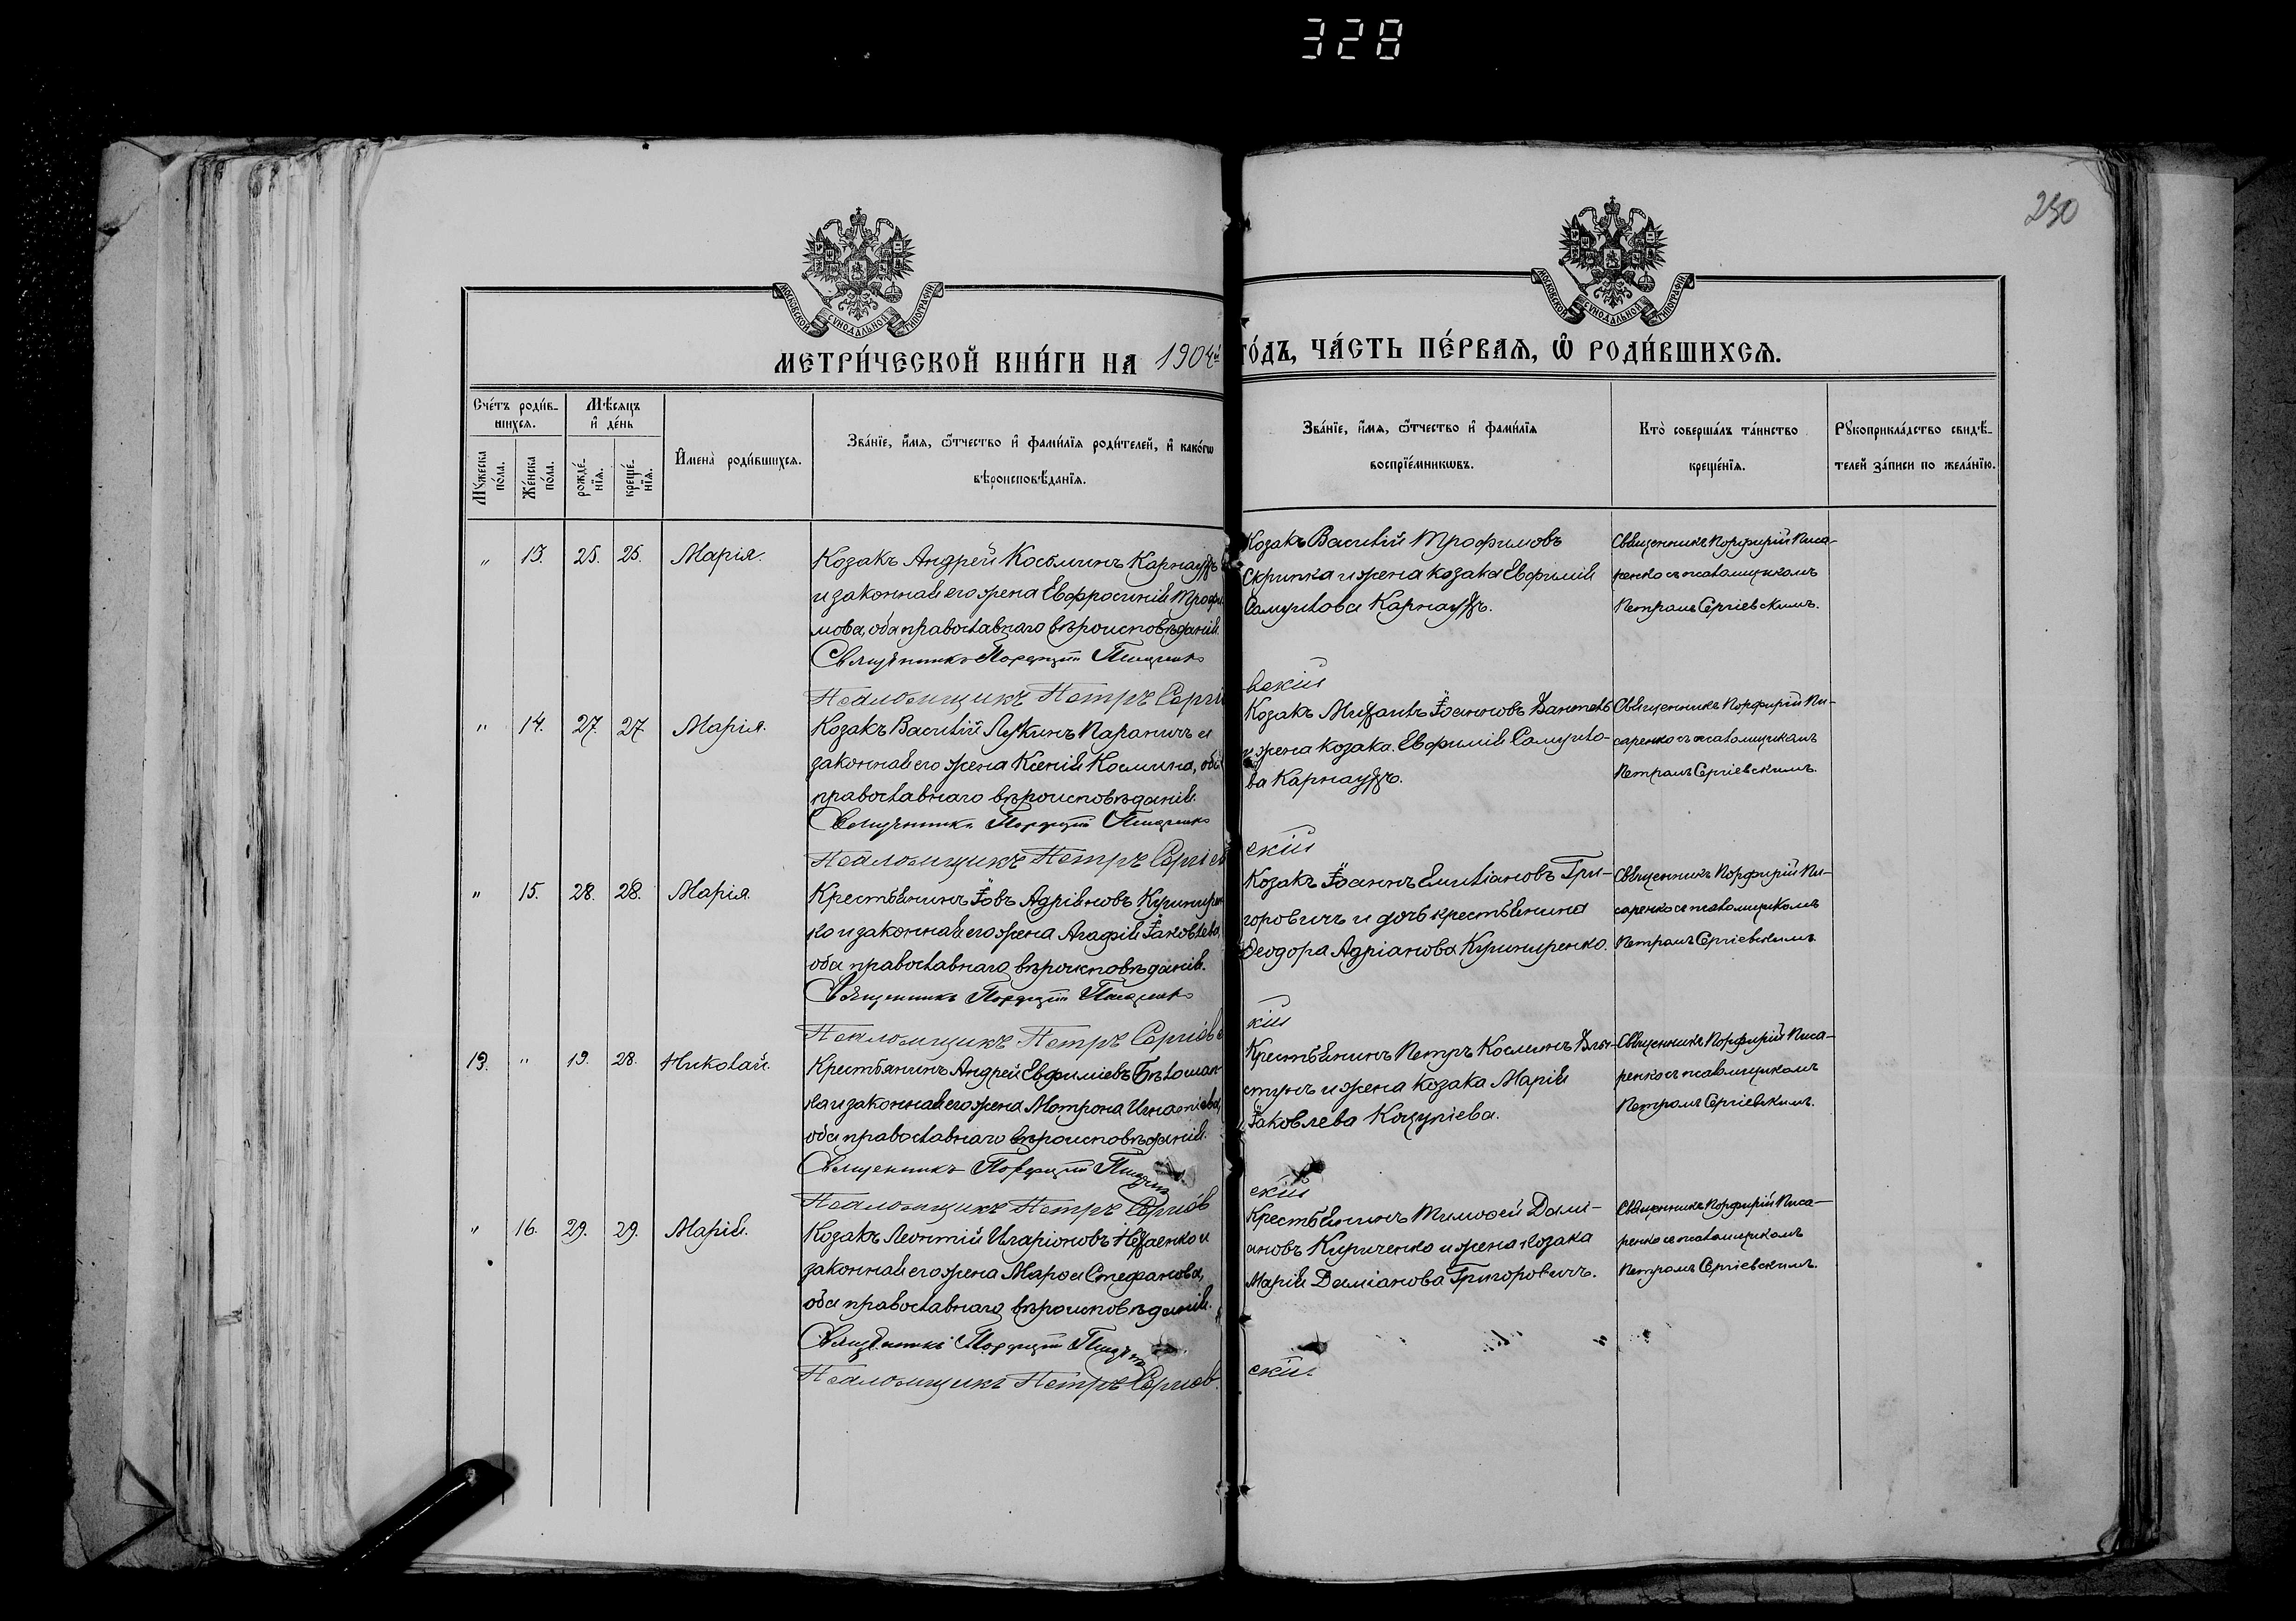 328
230
МОСКОВСКОЙ СѴНОДАЛЬНОЙ ТИПОГРАФІИ
МОСКОВСКОЙ СѴНОДАЛЬНОЙ ТИПОГРАФІИ
МЕТРИ́ЧЕСКОЙ КНИ́ГИ НА 1904й ГО́ДЪ, ЧА́СТЬ ПЕ́РВАЯ, Ѡ҆ РОДИ́ВШИХСЯ.
Сче́тъ роди́в-
шихся.
Мꙋ́жеска по́ла.
Же́нска по́ла.
Мѣ́сяцъ
и҆ де́нь
рожде́-
нїя.
креще́-
нїя.
И҆мена̀ роди́вшихся.
Зва́нїе, и҆́мя, ѻ҆́тчество и҆ фами́лїя роди́телей, и҆ како́гѡ
вѣроисповѣ́данїя.
Зва́нїе, и҆́мя, ѻ҆́тчество и҆ фами́лїя
воспрїе́мникѡвъ.
Кто̀ соверша́лъ та́инство
креще́нїя.
Рꙋкоприкла́дство свидѣ́-
телей за́писи по жела́нїю.
" 13. 25. 25. Марія.
Козакъ Андрей Косминъ Карнаухъ
и законная его жена Евфросинія Трофи
мова, оба православнаго вѣроисповѣданія.
Священникъ Порфирій Писаренко
Псаломщикъ Петръ Сергіевскій
Козакъ Василій Трофимовъ
Скрипка и жена козака Евфимія
Самуилова Карнаухъ.
Священникъ Порфирій Писа-
ренко съ псаломщикомъ
Петромъ Сергіевскимъ.
" 14. 27. 27. Марія.
Козакъ Василій Лукинъ Параничъ и
законная его жена Ксенія Космина, оба
православнаго вѣроисповѣданія.
Священникъ Порфирій Писаренко
Псаломщикъ Петръ Сергіевскій
Козакъ Михаилъ Іоанновъ
и жена козака Евфимія Самуило-
ва Карнаухъ.
Священникъ Порфирій Пи-
саренко съ псаломщикомъ
Петромъ Сергіевскимъ.
" 15. 28. 28. Марія.
Крестьянинъ Іовъ Адріановъ Кушнирен
ко и законная его жена Агафія Іаковлева,
оба православнаго вѣроисповѣданія.
Священникъ Порфирій Писаренко
Псаломщикъ Петръ Сергіевскій
Козакъ Іоаннъ Емиліановъ Гри-
горовичъ и дочь крестьянина
Ѳеодора Адріанова Кушниренко.
Священникъ Порфирій Пи-
саренко съ псаломщикомъ
Петромъ Сергіевскимъ
19. " 19. 28. Николай.
Крестьянинъ Андрей Евфиміевъ
и законная его жена Мотрона Игнатіева,
оба православнаго вѣроисповѣданія.
Священникъ Порфирій Писаренко
Псаломщикъ Петръ Сергіевскій
Крестьянинъ Петръ Косминъ
и жена козака Марія
Іаковлева Коцупіева.
Священникъ Порфирій Писа-
ренко съ псаломщикомъ
Петромъ Сергіевскимъ.
" 16. 29. 29. Марія.
Козакъ Леонтій Иларіоновъ Нехаенко и
законная его жена Марѳа Стефанова,
оба православнаго вѣроисповѣданія.
Священникъ Порфирій Писаренко
Псаломщикъ Петръ Сергіевскій
Крестьянинъ Тимоѳей Дамі-
ановъ Кириченко и жена козака
Марія Даміанова Григоровичъ.
Священникъ Порфирій Писа-
ренко съ псаломщикомъ
Петромъ Сергіевскимъ